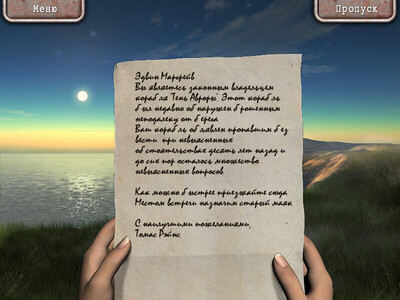 Меню
Пропуск
Эдвин Маргрейв
Вы являетесь законным владельцем
корабля "Тень Авроры". Этот корабль
был недавно обнаружен брошенным
неподалеку от берега
Ваш корабль объявлен пропавшим без
вести при невыясненных
обстоятельствах десять лет назад и
до сих пор осталось множество
невыясненных вопросов
Как можно быстрее приезжайте сюда
Местом встречи назначим старый маяк
С наилучшими пожеланиями,
Томас Рэйнс